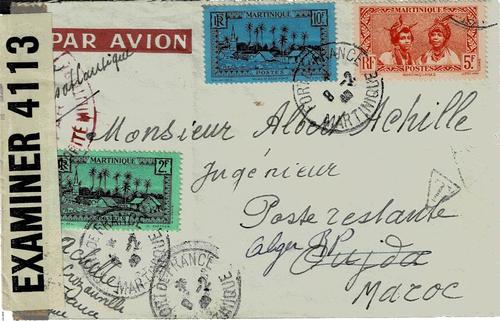 PAR AVION
EXAMINER 4113
RF MARTINIQUE 10F
POSTES
MARTINIQUE
RF POSTES 5F
FORT DE FRANCE
8 -2
MARTINIQUE
Monsieur Albert Achille
Ingénieur
Poste restante
Alger R.P.
Oujda
Maroc
RF MARTINIQUE 2F
POSTES
T
FORT DE FRANCE
MARTINIQUE
Achille